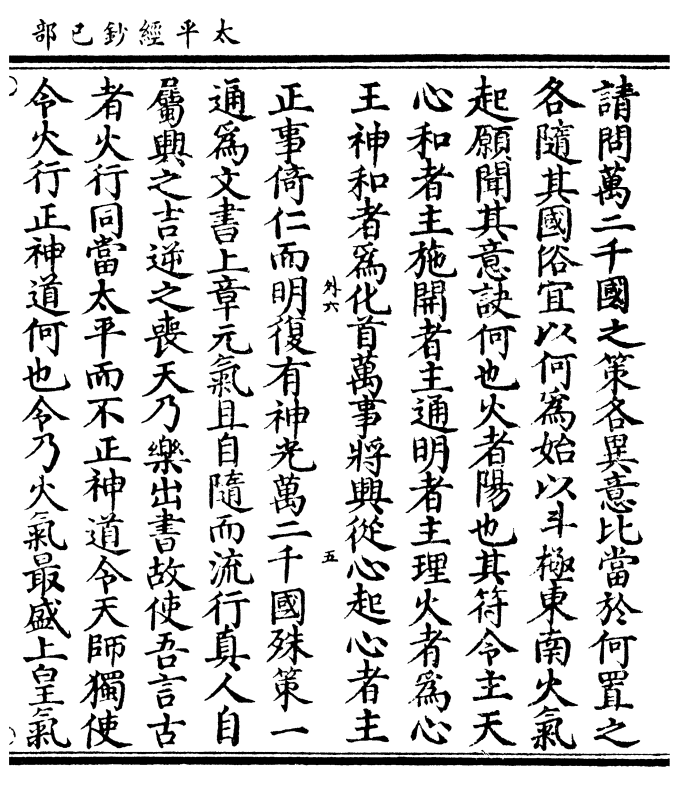 太平經鈔已部
請問萬二千國之策各異意比當於何置之
各隨其國俗宜以何爲始以斗極東南火氣
起願聞其意訣何也火者陽也其符令主天
心和者主施開者主通明者主理火者爲心
王神和者爲化首萬事將興從心起心者主
外六
五
正事倚仁而明復有神光萬二千國殊策一
通爲文書上章元氣且自隨而流行真人自
屬興之吉逆之喪天乃樂出書故使吾言古
者火行同當太平而不正神道令天師獨使
令火行正神道何也令乃火氣最盛上皇氣